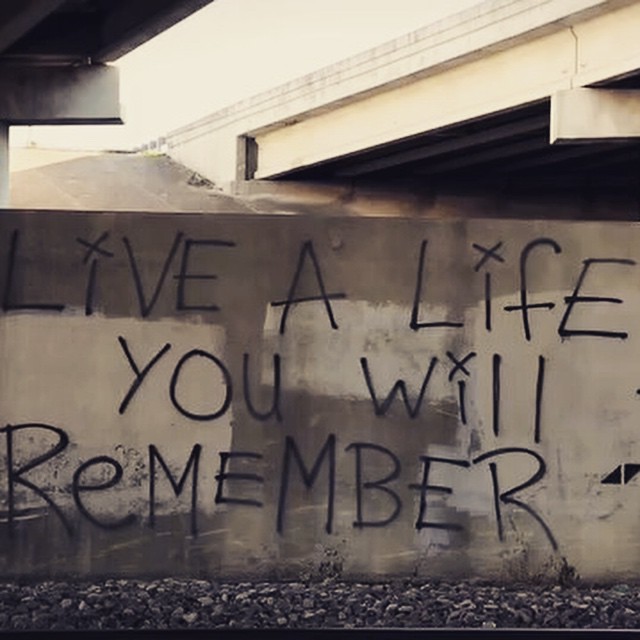 LiVE A LifE
YOu Will
ReMEMBER